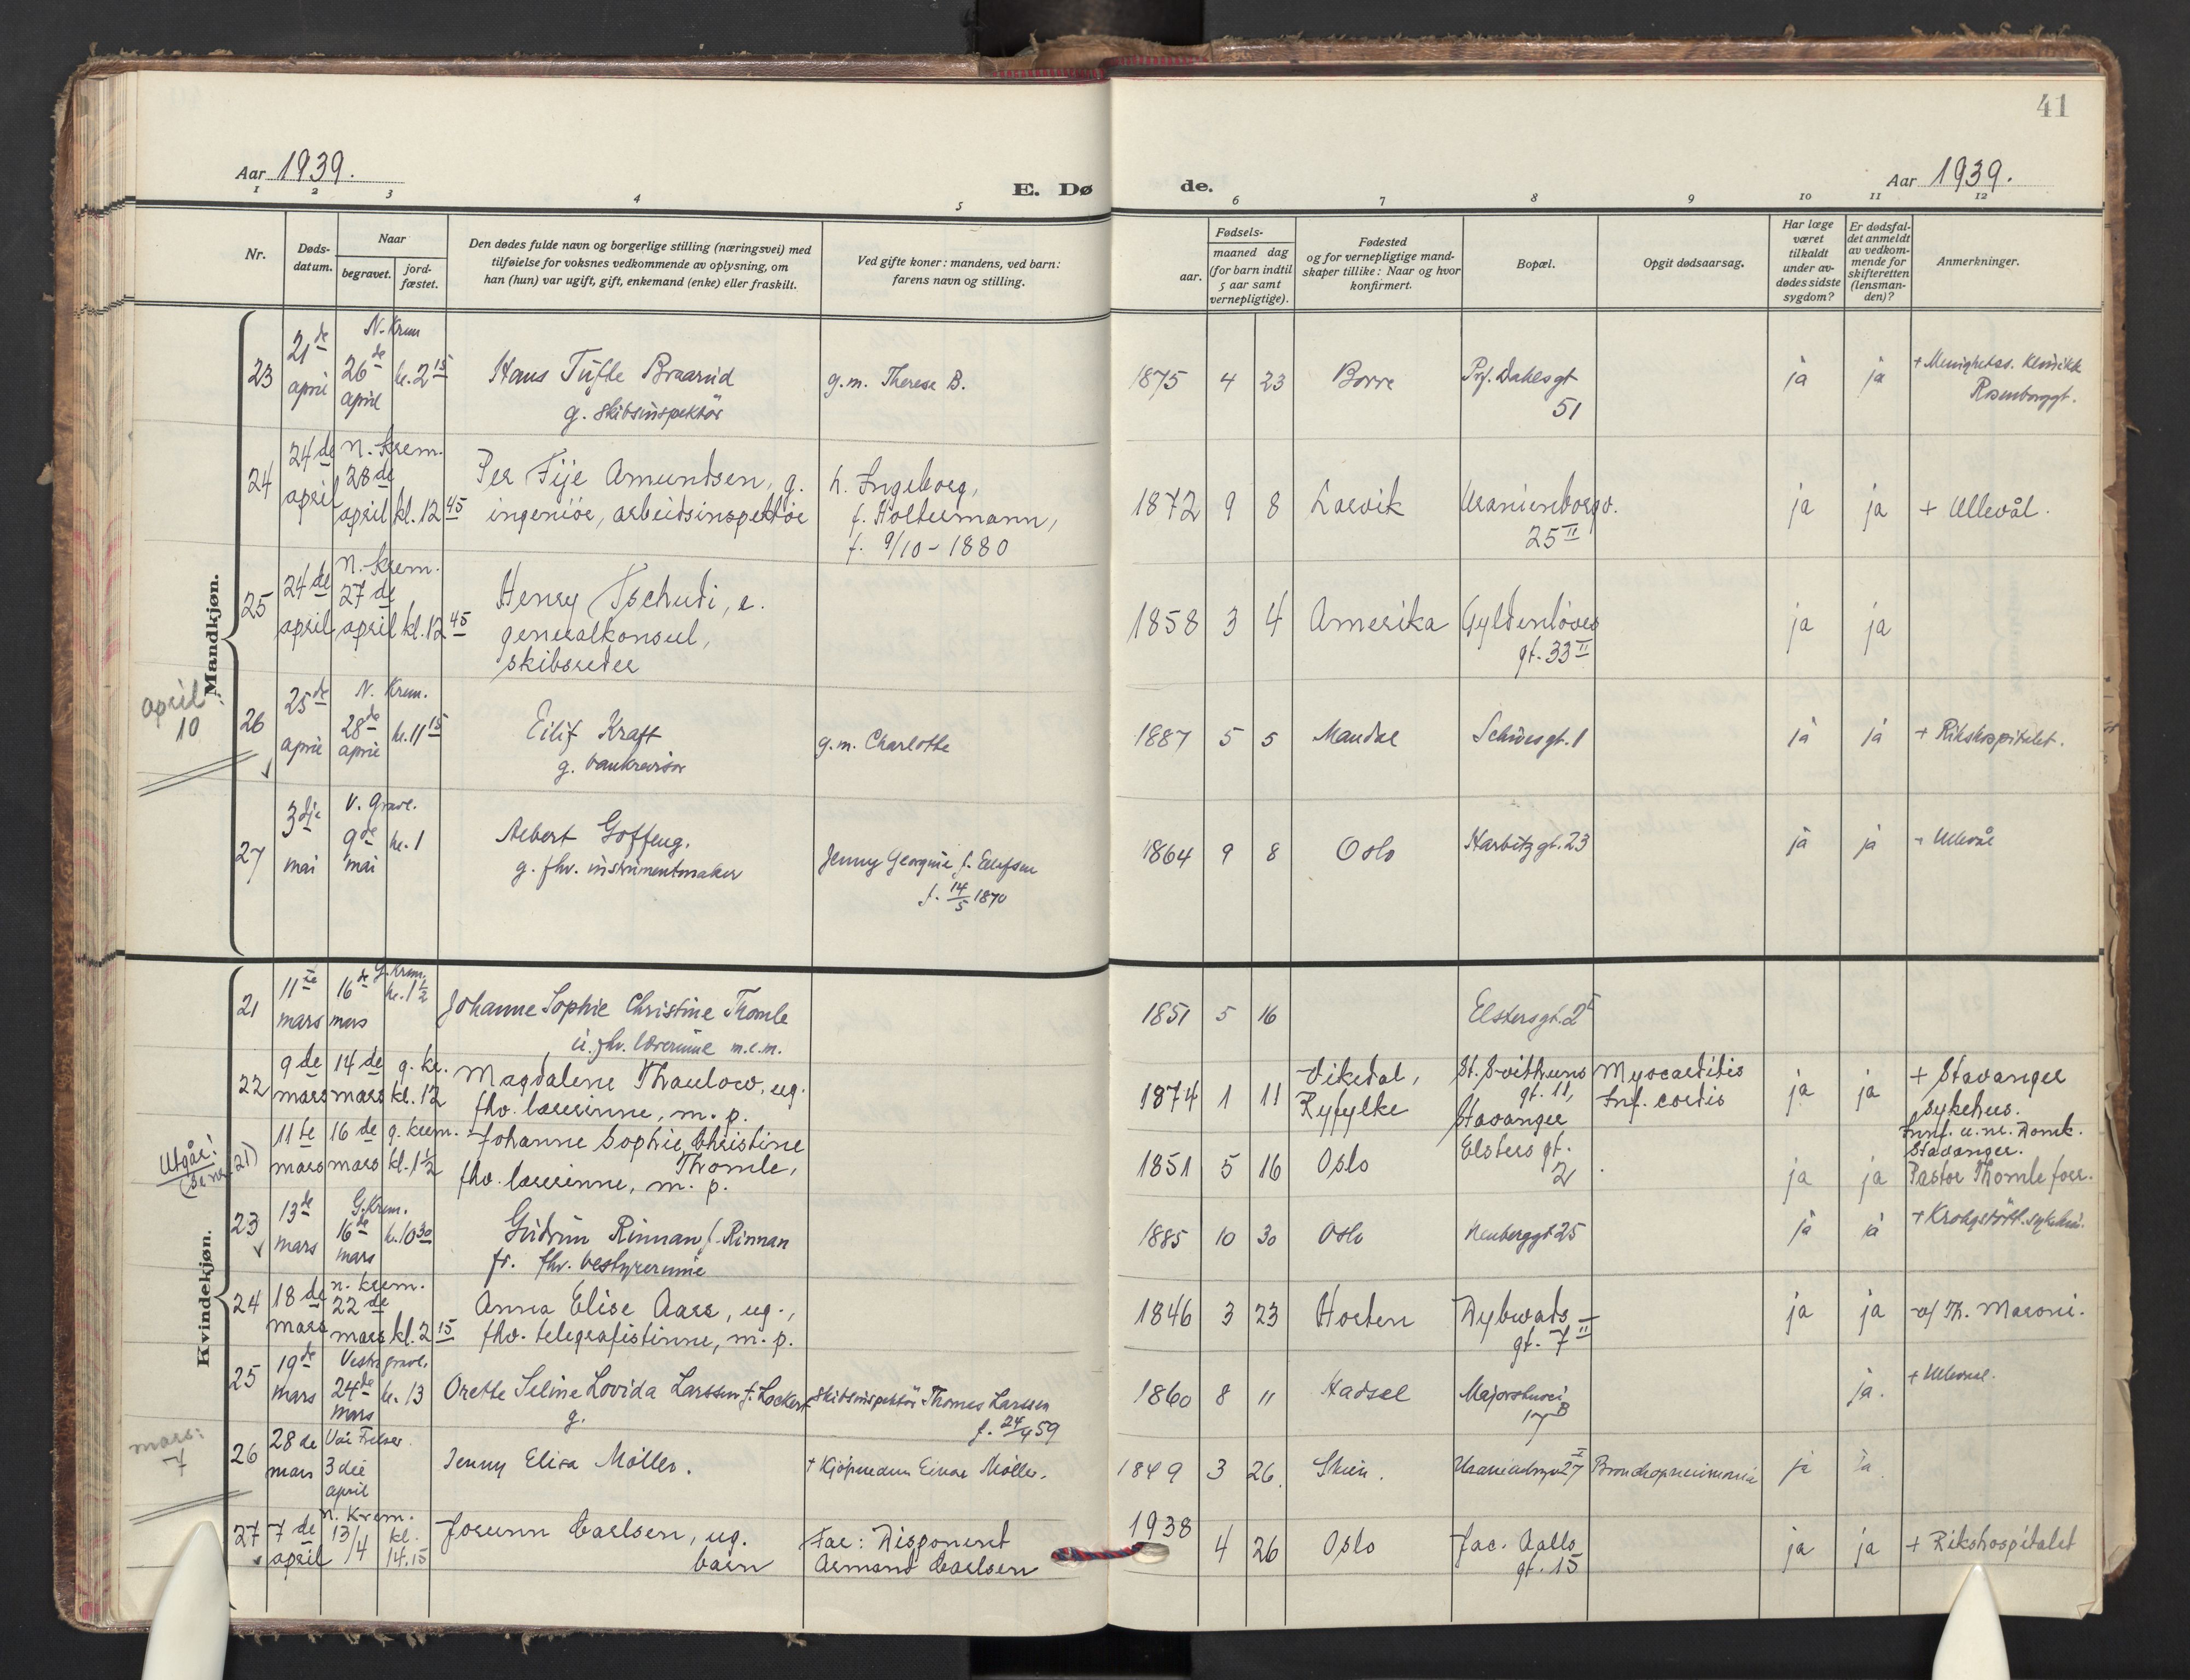 41
Aar 1939.
Aar 1939.
E. Døde.
1 2 3 4 5 6 7 8 9 10 11 12
Nr.
Døds-
datum.
Naar
begravet.
jord-
fæstet.
Den dødes fulde navn og borgerlige stilling (næringsvei) med
tilføielse for voksnes vedkommende av oplysning, om
han (hun) var ugift, gift, enkemand (enke) eller fraskilt.
Ved gifte koner: mandens, ved barn:
farens navn og stilling.
Fødsels-
aar.
maaned dag
(for barn indtil
5 aar samt
vernepligtige).
Fødested
og for vernepligtige mand-
skaper tillike: Naar og hvor
konfirmert.
Bopæl.
Opgit dødsaarsag.
Har læge
været
tilkaldt
under av-
dødes sidste
sygdom?
Er dødsfal-
det anmeldt
av vedkom-
mende for
skifteretten
(lensman-
den)?
Anmerkninger.
Mandkjøn.
23 21de april N. Krem 26de april kl. 2 15
Hans Tufte Braarud
g. skibsinspektör
g.m. Therese B.
1875 4 23 Borre Prf. Dahlsgt 51 ja ja + Menighetss. Klinikk
Rosenborggt.
24 24de april n. krem. 28de april kl. 12 45
Per Fije Amundsen, g.
ingeniør, arbeidsinspektør
h. Ingeborg,
f. Holtermann,
f. 9/10 - 1880
1872 9 8 Larvik Uranienborgv. 25 II ja ja + Ullevål.
25 24de april n. krem. 27de april kl. 12 45
Henry Tschudi, e.
generalkonsul,
skibsreder
1858 3 4 Amerika Gyldenløves gt. 33 II ja ja
april:
10
26 25de april N. Krem. 28de april kl. 11 15
Eilif Kraft
g. bankrevisor
g.m. Charlotte
1887 5 5 Mandal Schivesgt. 1 ja ja + Rikshospitalet.
27 3dje mai V. Gravl. 9de mai kl. 1
Albert Goffeng.
g. fhv. instrumentmaker
Jenny Georgine f. Ellefsen
f. 14/5 1870
1864 9 8 Oslo Harbitzgt. 23 ja ja + Ullevål
Kvindekjøn.
21 11te mars 16de mars G. Krem. kl. 1 1/2
Johanne Sophie Christine Thomle
u. fhv. lærerinne m.e.m.
1851 5 16 Elstersgt. 2
22 9de mars 14de mars g. kr. kl. 12
Magdalene Thaulow, ug.
fhv. lærerinne, m. p.
1874 1 11 Vikedal,
Ryfylke
St. Svithuns
gt. 11,
Stavanger
Myocarditis
Inf. cordis
ja ja + Stavanger
sykehus.
Innf. u. nr. Domk.
Stavanger.
Utgår!
(se nr. 21)
11te mars 16de mars g. krem. kl. 1 1/2
Johanne Sophie Christine
Thomle,
fhv. lærerinne, m. p.
1851 5 16 Oslo Elsters gt. 2 ja ja Pastor Thomle forr.
23 13de mars G. Krem. 16de mars kl. 10 30
Gudrun Rinnan f. Rinnan
fr. fhv. bestyrerinne
1885 10 30 Oslo Neuberggt 25 ja ja + Krohgstøtt. sykehus.
24 18de mars n. krem. 22de mars kl. 2 15
Anna Elise Aars, ug.,
fhv. telegrafistinne, m. p.
1846 3 23 Horten Dybwads
gt. 7 II
ja ja v/ Th. Maroni.
25 19de mars Vestre gravl. 24de mars kl. 13
Orette Seline Lovida Larssen f. Lockert
g.
skibsinspektör Thomes Larssen
f. 24/4 59
1860 8 11 Hadsel Majorstuvei
17 B
ja. + Ullevaal.
mars:
7
26 28de mars Vår Frelser. 3die april
Jenny Elisa Möller.
+ Kjöpmann Einar Möller.
1849 3 26. Skien. Uranienborgv 27 I Bronchopneumonia ja ja.
27 7de april n. Krem. 13/4 kl. 14.15
Jorunn Carlsen, ug.
barn
Far: Disponent
Armand Carlsen
1938 4 26 Oslo Jac. Aalls
gt. 15
ja ja + Rikshospitalet